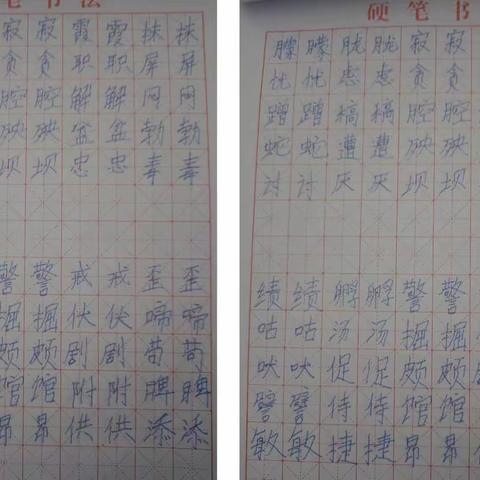 笔书法
寂寂霞霞抹抹
贪贪职职屏屏
腔腔解解网网
殃殃盆盆勃勃
坝坝忠忠毒毒
警警戒戒歪歪
掘掘伏伏啼啼
颇颇剧剧苟苟
馆馆附附脾脾
昂昂供供添添
硬笔书
朦朦胧胧寂寂
忧忧虑虑贪贪
蹭蹭稿稿腔腔
蛇蛇遭遭殃殃
讨讨厌厌坝坝
绩绩孵孵警警
咕咕汤汤掘掘
吠吠促促颇颇
譬譬侍侍馆馆
敏敏捷捷昂昂